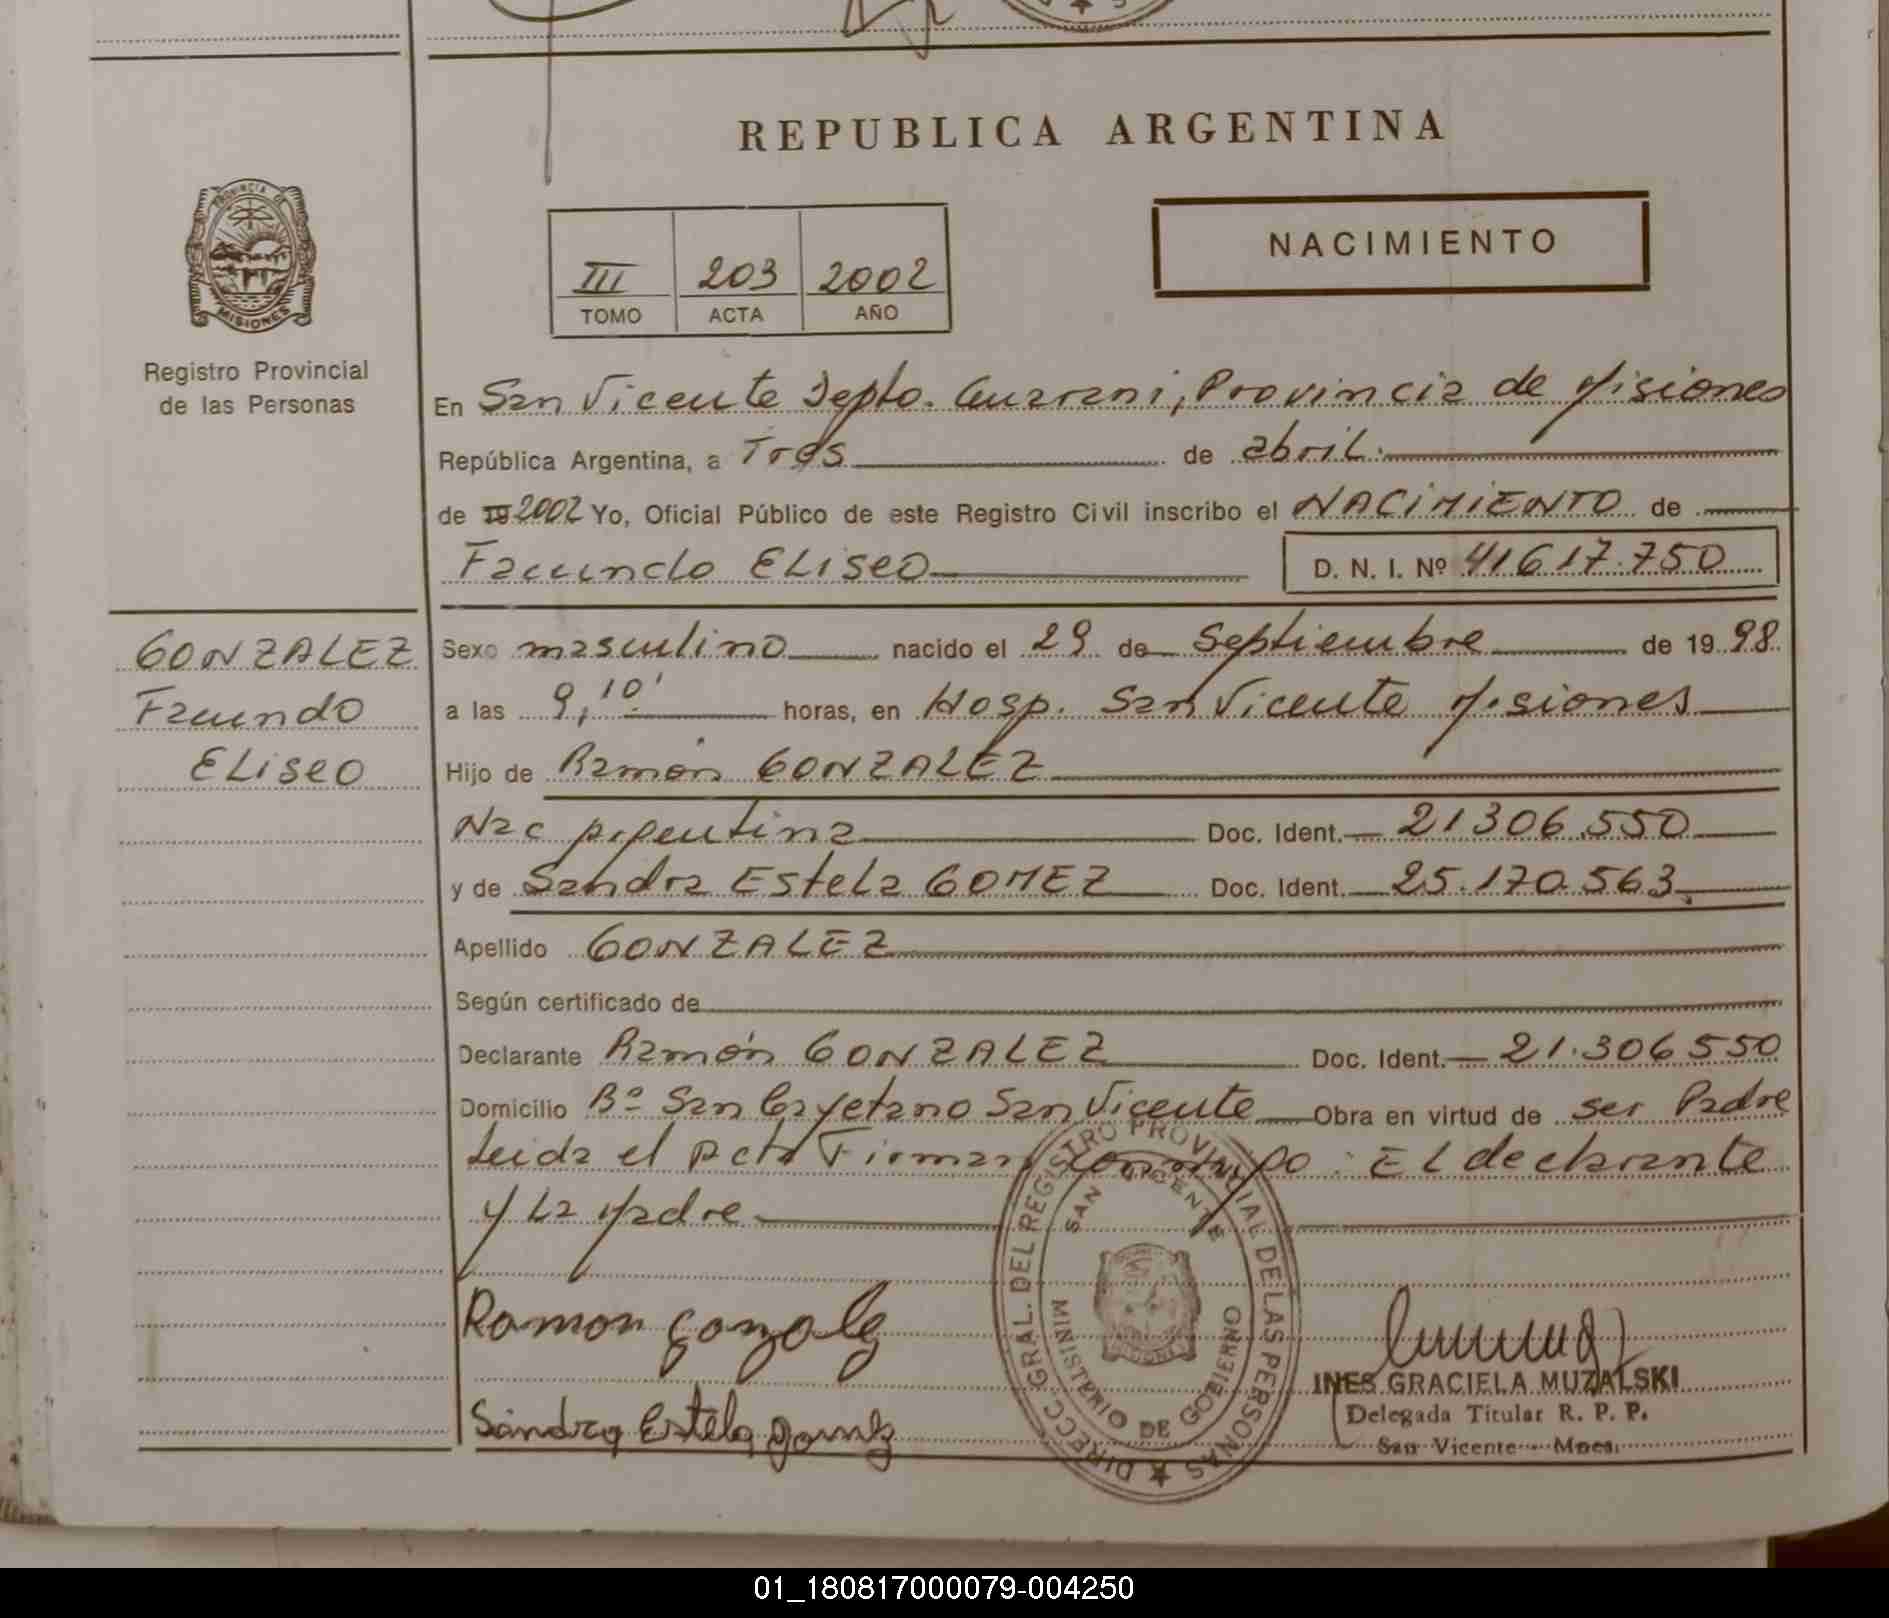 REPUBLICA ARGENTINA
PROVINCIA DE
MISIONES
Registro Provincial
de las Personas
III 203 2002
TOMO ACTA AÑO
NACIMIENTO
En San Vicente Depto. Guarani, Provincia de Misiones
República Argentina, a Tres de abril.
de 19 2002 Yo, Oficial Público de este Registro Civil inscribo el NACIMIENTO de
Facundo ELISEO D. N. I. Nº 41617.750
GONZALEZ
Facundo
ELISEO
Sexo masculino nacido el 29 de Septiembre de 19 98
a las 9,10' horas, en Hosp. San Vicente Misiones
Hijo de Ramón GONZALEZ
Nac Argentina Doc. Ident. 21306.550
y de Sandra Estela GOMEZ Doc. Ident. 25.170.563
Apellido GONZALEZ
Según certificado de
Declarante Ramón GONZALEZ Doc. Ident. 21.306550
Domicilio Bº San Cayetano San Vicente Obra en virtud de ser Padre
Leida el Acta Firman conmigo: El declarante
y La Madre
Ramon Gonzalez
Sandra Estela gomez
DIRECC. GRAL. DEL REGISTRO PROVINCIAL DE LAS PERSONAS
SAN VICENTE
MINISTERIO DE GOBIERNO
MISIONES
INES GRACIELA MUZALSKI
Delegada Titular R. P. P.
San Vicente - Mnes.
01_180817000079-004250